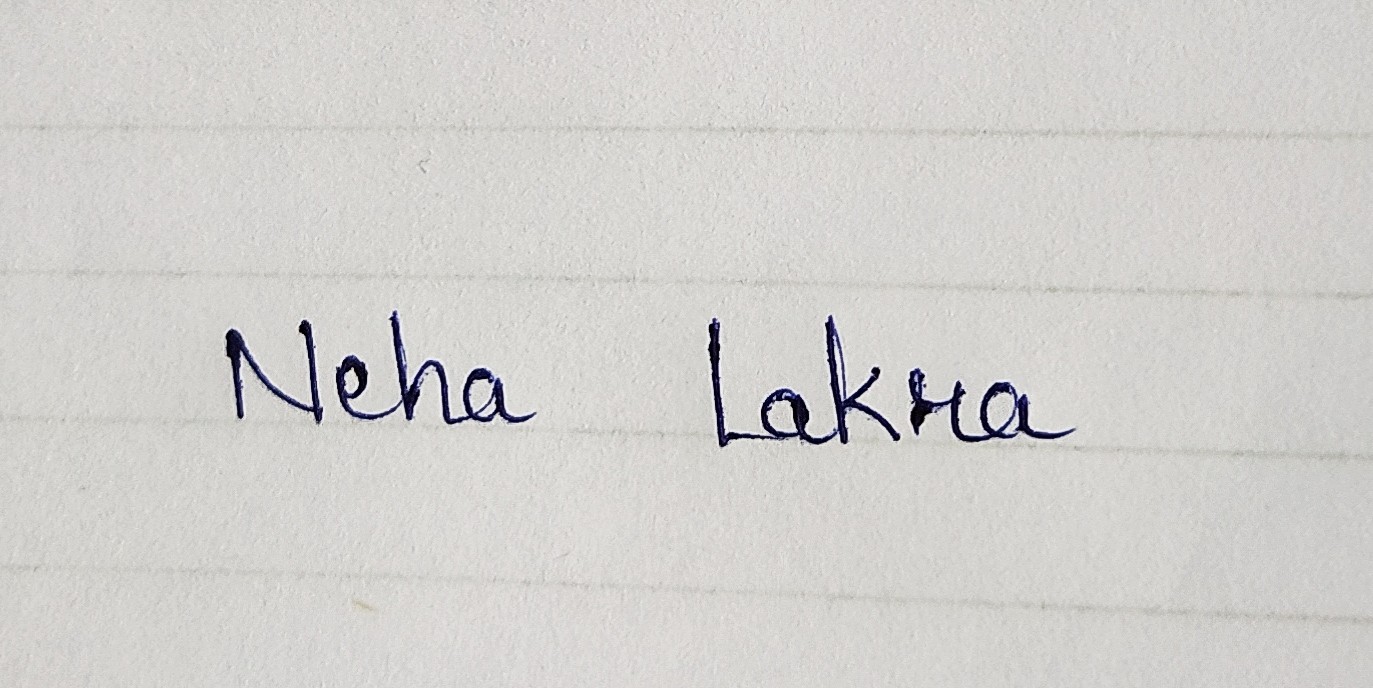 Neha Lakra